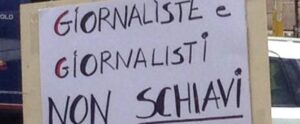 GIORNALISTE e
GIORNALISTI
NON SCHIAVI